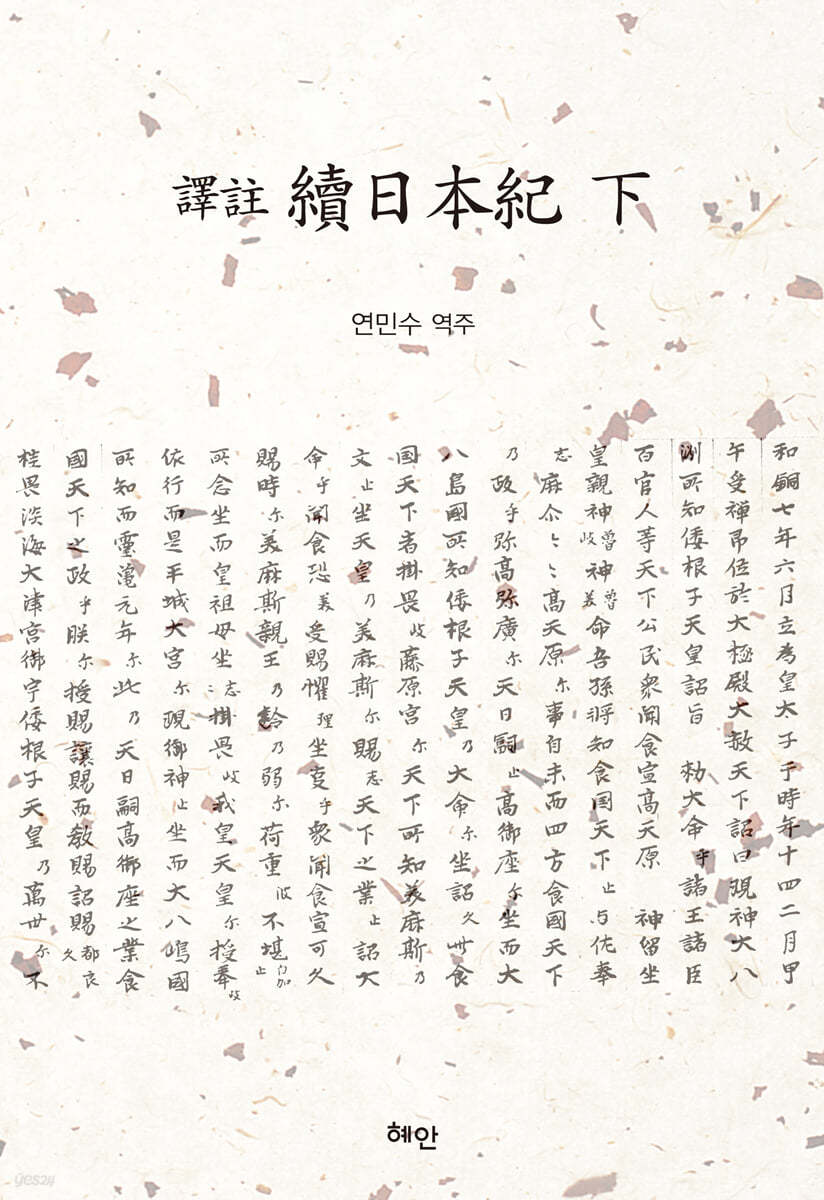 譯註 續日本紀 下
연민수 역주
和銅七年六月立為皇太子于時年十四二月甲
午受禪即位於大極殿大赦天下詔曰現神大八
洲所知倭根子天皇詔旨 勅大命乎諸王諸臣
百官人等天下公民衆聞食宣高天原 神留坐
皇親神魯岐神魯美命吾孫将知食国天下止与佐奉
志麻尓々々高天原尓事自来而四方食國天下
乃政乎弥高弥廣尓天日嗣止高御座尓坐而大
八島國所知倭根子天皇乃大命尓坐詔久世食
国天下者掛畏岐藤原宮尓天下所知美麻斯乃
文止坐天皇乃美麻斯尓賜志天下之業止詔大
命乎聞食恐美受賜懼理坐事乎衆聞食宣可久
賜時尓美麻斯親王乃齡乃弱尓荷重波不堪加止
所念坐而皇祖母坐志掛畏岐我皇天皇尓授奉岐
依行而是平城大宮尓現御神止坐而大八嶋國
所知而靈亀元年尓此乃天日嗣高御座之業食
國天下之政乎朕尓授賜讓賜而教賜詔賜都良久
桂畏淡海大津宮御宇倭根子天皇乃萬世尓不
혜안
yes24